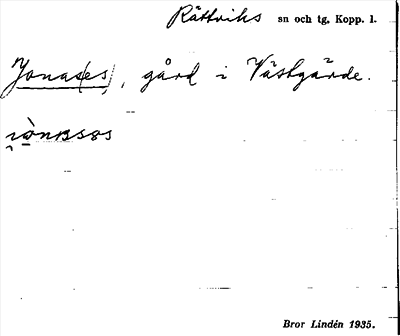 Rättviks sn och tg. Kopp. l.
Jonas(es), gård i Västgärde.
Bror Lindén 1935.